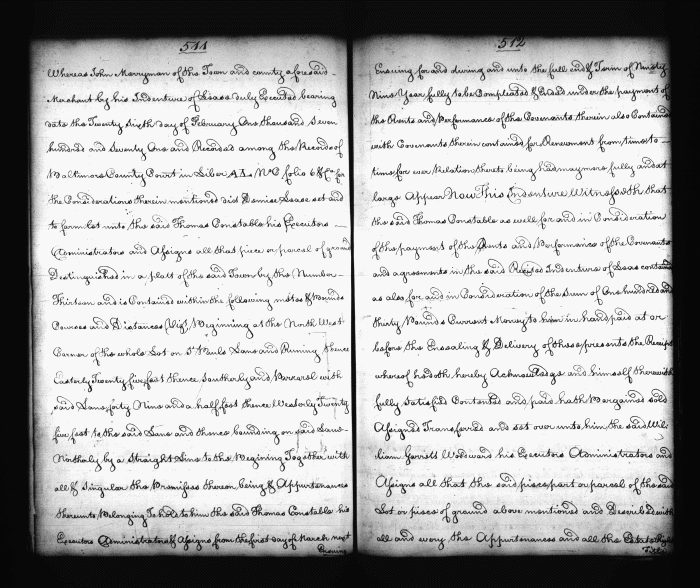 511
Whereas John Merryman of the Town and county aforesaid
Merchant by his Indenture of Lease duly Executed bearing
date the Twenty sixth day of February One thousand Seven
hundred and Seventy One and Recorded among the Records of
Baltimore County Court in Liber AL No C folio 6 &c for
the Considerations therein mentioned did Demise Lease set and
to farm let unto the said Thomas Constable his Executors
Administrators and Assigns all that piece or parcel of ground
Distinguished in a platt of the said Town by the Number
Thirteen and is Contained within the following metes & Bounds
Courses and Distances Vizt Beginning at the North West
Corner of the whole Lot on St Pauls Lane and Runing thence
Easterly Twenty five feet thence Southerly and Parrerel with
said Lane forty Nine and a half feet thence Westerly Twenty
five feet to the said Lane and thence bounding on said Lane
Northerly by a Straight Line to the Begining Together with
all & Singular the Premisses thereon being & Appurtenances
thereunto Belonging To hold to him the said Thomas Constable his
Executors Administrators & Assigns from the first day of March next
Ensuing
512
Ensuing for and during and unto the full end & Term of Ninety
Nine Year fully to be Compleated & Ended under the payment of
the Rents and Performance of the Covenants therein also Contained
with Covenants therein contained for Renewment from time to
time for ever Relation thereto being had may more fully and at
large Appear Now This Indenture Witnesseth that
the said Thomas Constable as well for and in Consideration
of the payment of the Rents and Performance of the Covenants
and agreements in the said Recited Indenture of Leas contained
as also for and in Consideration of the Sum of One hundred and
thirty Pounds Current Money to him in hand paid at or
before the Ensealing & Delivery of these presents the Receipt
whereof he doth hereby Acknowledge and himself therewith
fully Satisfied Contented and paid hath Bargained sold
Assigned Transferred and set over unto him the said Wil
liam Garrett Woodward his Executors Administrators and
Assigns all that the said piece part or parcel of the said
Lot or piece of ground above mentioned and Described with
all and every the Appurtenances and all the Estate Right
Title